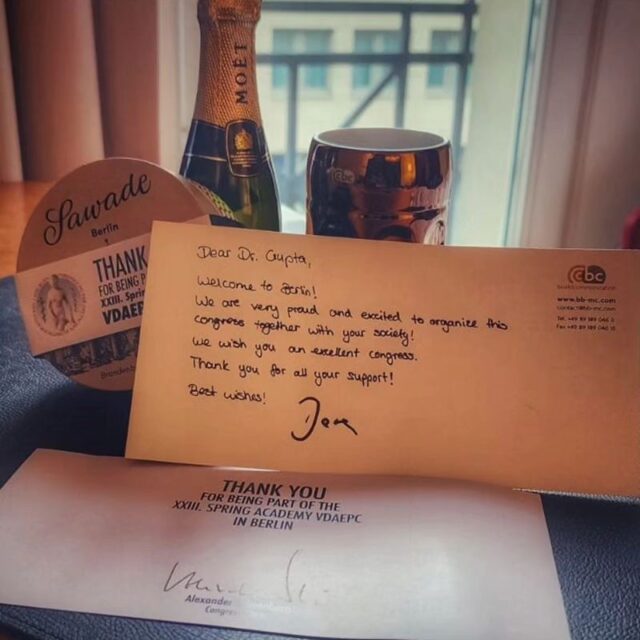 MOËT
cbc
Sawade
Berlin
THANK
FOR BEING P
XXIII. Spri
VDAEP
Brandenb
Dear Dr. Gupta,
Welcome to Berlin!
We are very proud and excited to organize this
congress together with your society!
We wish you an excellent congress.
Thank you for all your support!
Best wishes!
cbc
www.bb-mc.com
THANK YOU
FOR BEING PART OF THE
XXIII. SPRING ACADEMY VDAEPC
IN BERLIN
Alexander
Congre